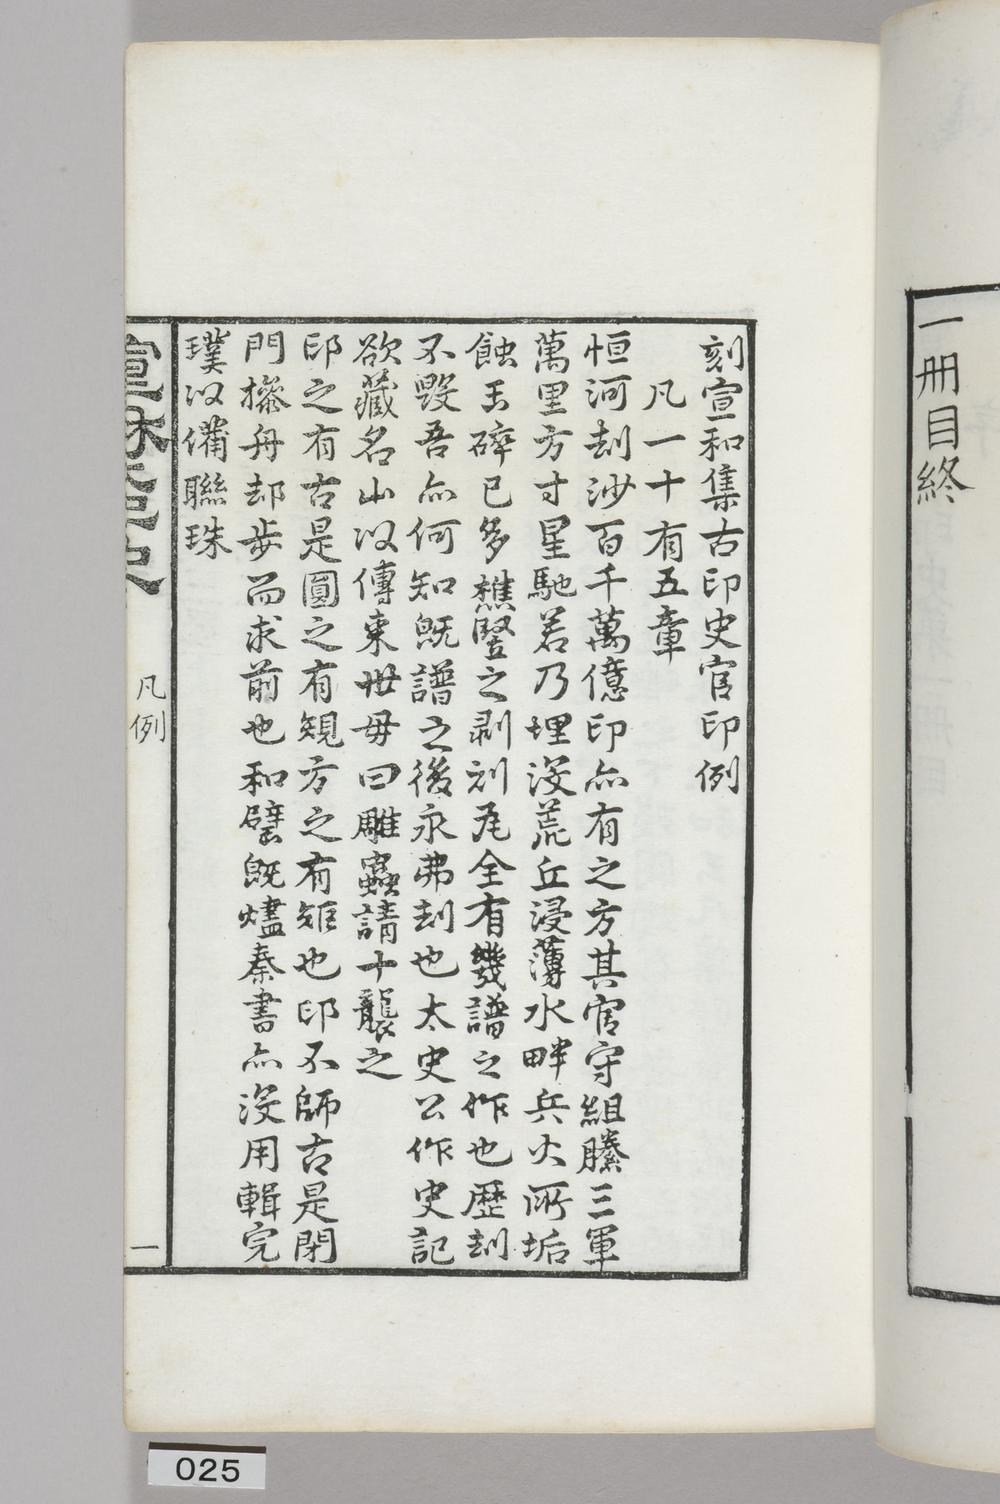 一册目終
刻宣和集古印史官印例
凡一十有五章
恒河刦沙百千萬億印亦有之方其官守組縢三軍
萬里方寸星馳若乃埋沒荒丘浸薄水畔兵火所垢
蝕玉碎已多樵豎之剥刓瓦全有幾譜之作也歷刦
不毀吾亦何知旣譜之後永弗刦也太史公作史記
欲藏名山以傳来世毋曰雕蟲請十襲之
印之有古是圓之有規方之有矩也印不師古是閉
門㨶舟却步而求前也和璧旣燼秦書亦沒用輯完
璞以備聯珠
凡例
一
025